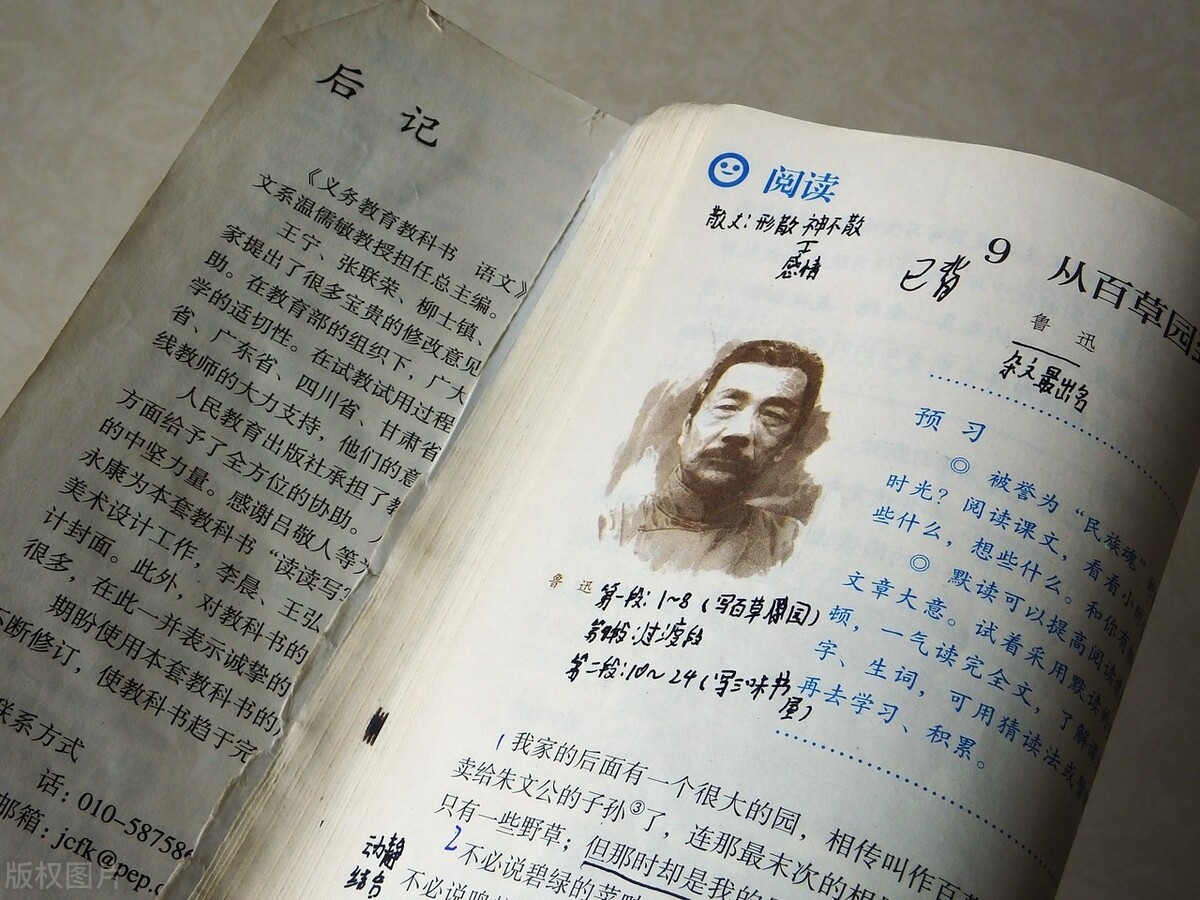 后记
《义务教育教科书 语文》
文系温儒敏教授担任总主编。
王宁、张联荣、柳士镇、
家提出了很多宝贵的修改意见
助。在教育部的组织下，广大
学的适切性。在试教试用过程
省、广东省、四川省、甘肃省
线教师的大力支持，他们的意
人民教育出版社承担了教
方面给予了全方位的协助。
的中坚力量。感谢吕敬人等
永康为本套教科书“读读写
美术设计工作，李晨、王弘
计封面。此外，对教科书的
很多，在此一并表示诚挚的
期盼使用本套教科书的
不断修订，使教科书趋于完
联系方式
话：010-58758
邮箱：jcfk@pep.c
阅读
散文：形散神不散
感情
已背
9 从百草园
鲁迅
杂文最出名
预习
◎ 被誉为“民族魂”
时光？阅读课文，看看小
些什么，想些什么。和你有
◎ 默读可以提高阅读
文章大意。试着采用默读的
顿，一气读完全文，了解
字、生词，可用猜读法或
再去学习、积累。
鲁迅
第一段：1~8（写百草园）
过渡段
第二段：10~24（写三味书屋）
1 我家的后面有一个很大的园，相传叫作百草
卖给朱文公的子孙③了，连那最末次的相
只有一些野草；但那时却是我的
2 不必说碧绿的菜畦
不必说鸣
动静
结合
版权图片